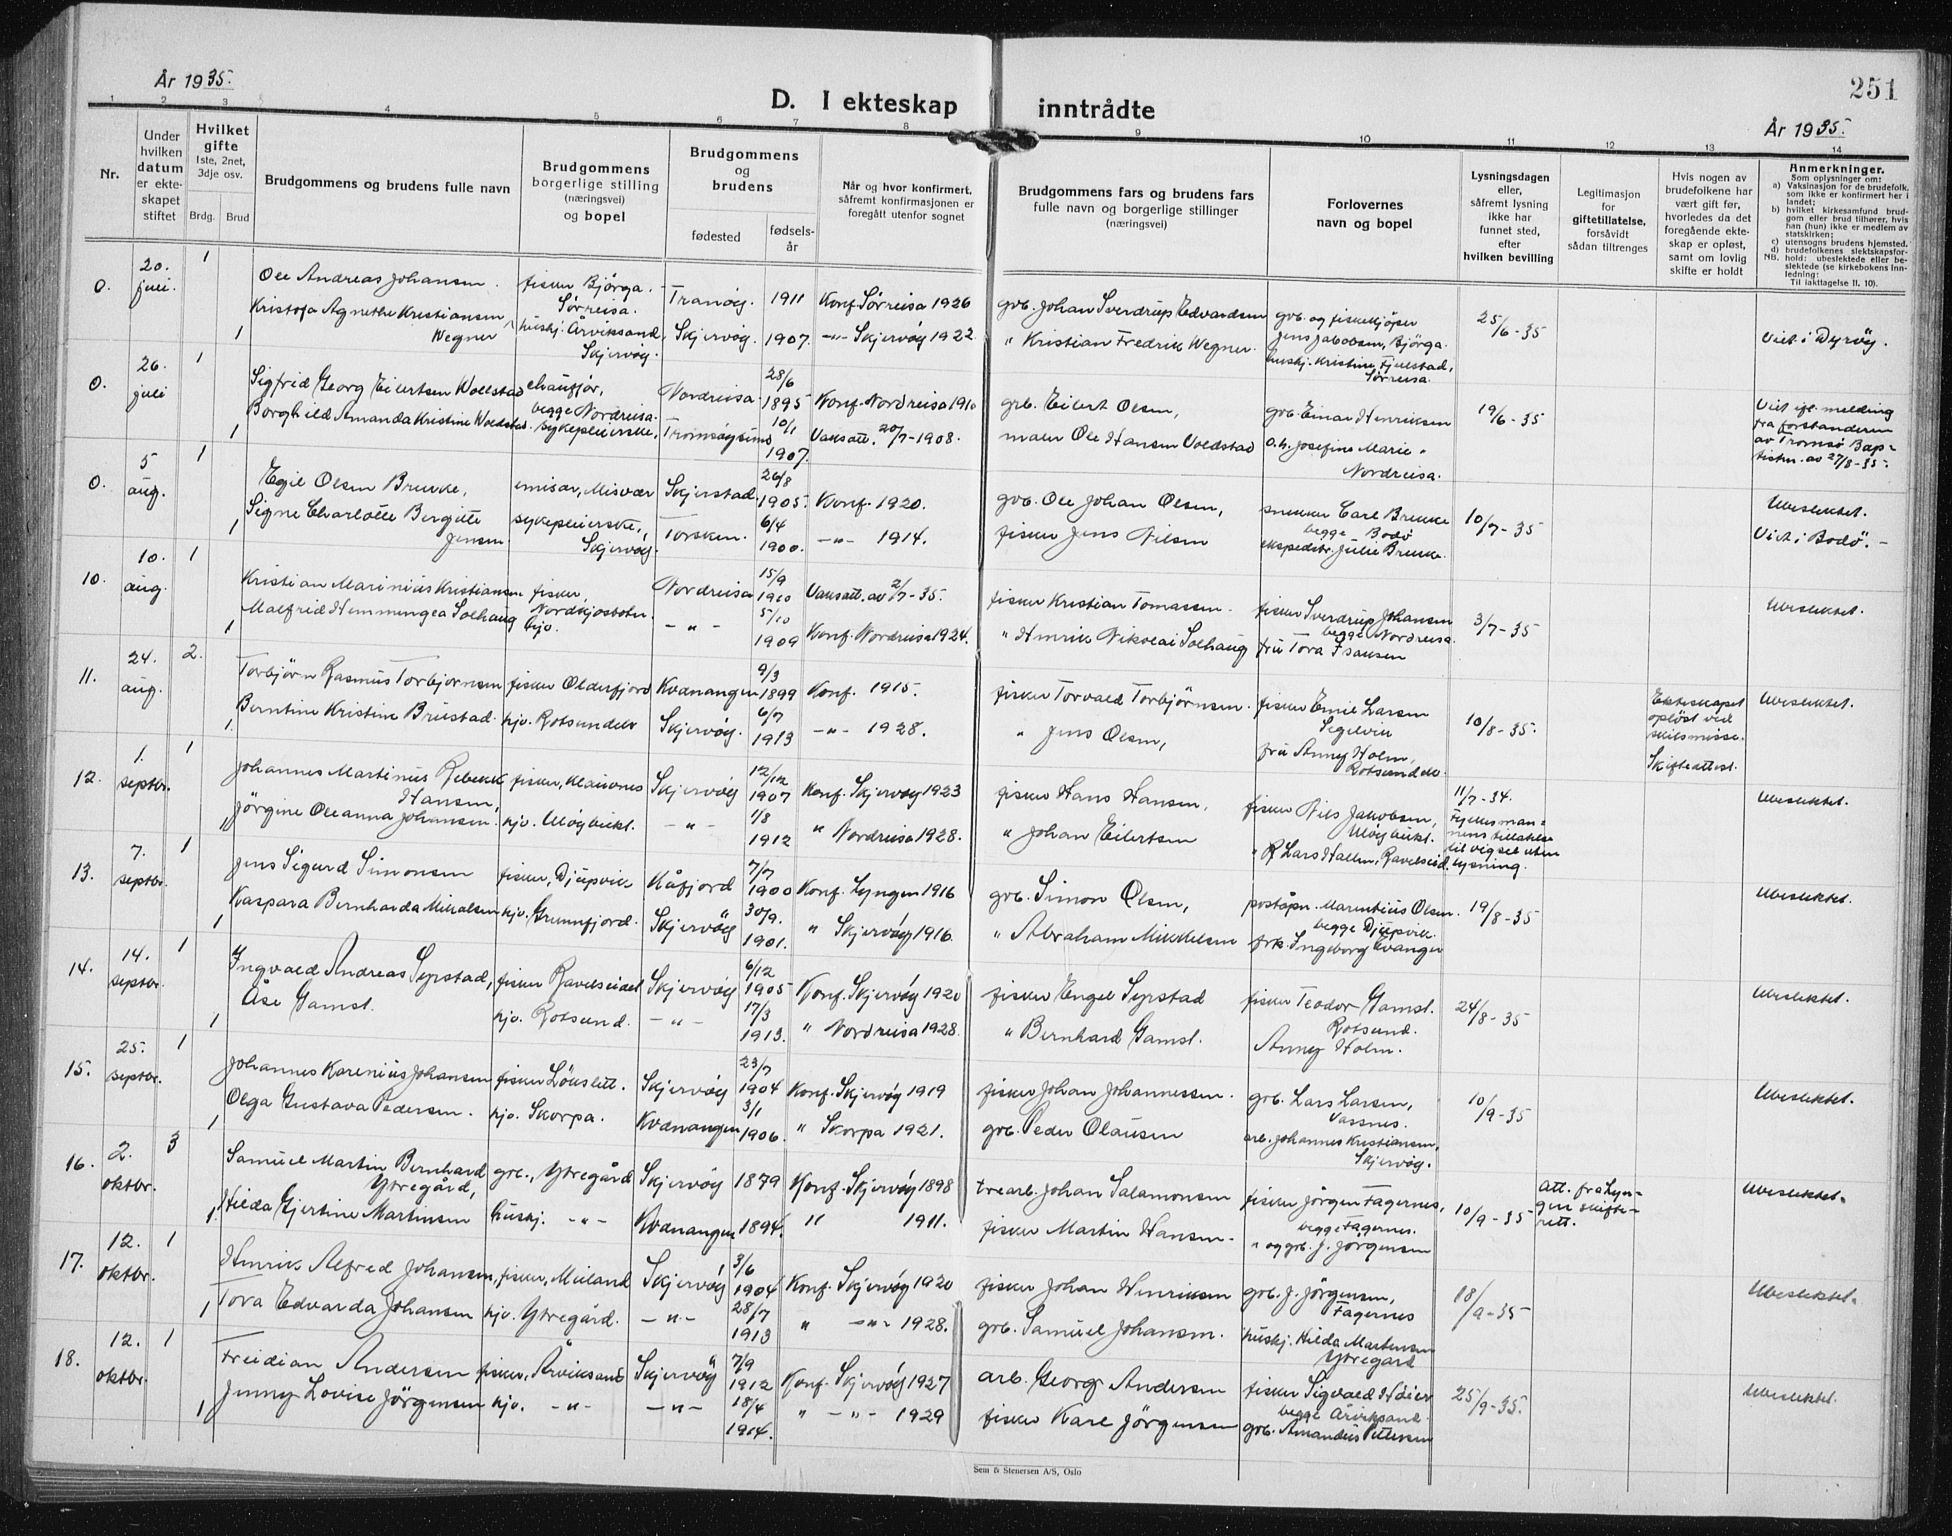 251
År 1935.
D. I ekteskap inntrådte
År 1935.
1 2 3 4 5 6 7 8 9 10 11 12 13 14
Nr.
Under hvilken datum er ekte-skapet stiftet
Hvilket gifte 1ste, 2net, 3dje osv.
Brdg. Brud
Brudgommens og brudens fulle navn
Brudgommens borgerlige stilling (næringsvei) og bopel
Brudgommens og brudens
fødested
fødsels-år
Når og hvor konfirmert, såfremt konfirmasjonen er foregått utenfor sognet
Brudgommens fars og brudens fars fulle navn og borgerlige stillinger (næringsvei)
Forlovernes navn og bopel
Lysningsdagen eller, såfremt lysning ikke har funnet sted, efter hvilken bevilling
Legitimasjon for giftetillatelse, forsåvidt sådan tiltrenges
Hvis nogen av brudefolkene har vært gift før, hvorledes da det foregående ekte-skap er opløst, samt om lovlig skifte er holdt
Anmerkninger.
Som oplysninger om:
a) Vaksinasjon for de brudefolk, som ikke er konfirmert her i landet;
b) hvilket kirkesamfund brud-gom eller brud tilhører, hvis han (hun) ikke er medlem av statskirken;
c) utensogns brudens hjemsted.
d) brudefolkenes slektskapsfor-hold: ubeslektede eller be-slektede (se kirkebokens inn-ledning:
NB. Til iakttagelse II. 10).
0. 20. juli. 1 Ole Andreas Johansen. fisker Bjørga. Sørreisa. Tranøy. 1911 Konf. Sørreisa 1926 grb. Johan Sverdrup Edvardsen grb. og fiskekjøper Jens Jakobsen, Bjørga. 25/6-35 Viet i Dyrøy.
1 Kristofa Agnethe Kristiansen Wegner huskj. Årviksand, Skjervøy. Skjervøy. 1907. -"- Skjervøy 1922 " Kristian Fredrik Wegner. huskj. Kristine Fjellstad, Sørreisa.
0. 26. juli 1 Sigfrid Georg Eilertsen Wollstad chauffør, begge Nordreisa. Nordreisa 28/6 1895 Konf. Nordreisa 1910 grb. Eilert Olsen, grb. Einar Henriksen 19/6-35 Viet ifl. melding fra forstanderen av Tromsø Bap-tistm. av 27/8-35.
1 Borghild Amanda Kristine Woldstad. sykepleierske, Tromsøysund 10/1 1907. Vaksatt. 20/7-1908. maler Ole Hansen Voldstad o.h. Josefine Marie " Nordreisa.
0. 5 aug. 1 Egil Olsen Brekke, emisær, Misvær Skjerstad. 26/8 1905. Konf. 1920. grb. Ole Johan Olsen, snekker Carl Brekke begge Bodø 10/7-35 Ubeslektet.
1 Signe Charlotte Bergitte Jensen sykepleierske, Skjervøy. Torsken. 6/4 1900. -"- 1914. fisker Jens Nilsen ekspeditr. Julie Brekke. Viet i Bodø. -
10. 10. aug. 1 Kristian Marinius Kristiansen fisker, Nordkjosbotn Nordreisa 15/9 1910 Vaksatt. av 2/7-35. fisker Kristian Tomassen. fisker Sverdrup Johansen begge Nordreisa. 3/7-35 Ubeslektet.
1 Malfrid Hemmingea Solhaug hjv. -"- 5/10 1909 Konf. Nordreisa 1924. " Henrik Nikolai Solhaug fru Tora Isaksen
11. 24. aug. 2. Torbjørn Rasmus Torbjørnsen fisker Olderfjord Kvænangen 9/3 1899 Konf. 1915. fisker Torvald Torbjørnsen. fisker Emil Larsen Segelvik 10/8-35. Ekteskapet opløst ved skilsmisse. Skifteattest. Ubeslektet.
1. Berntine Kristine Brustad. hjv. Rotsundelv Skjervøy. 6/7 1913 -"- 1928. " Jens Olsen, fru Anny Holm, Rotsundelv.
12. 1. septbr. 1 Johannes Martinus Rebekk Hansen, fisker, Klauvnes Skjervøy 12/12 1907 Konf. Skjervøy 1923 fisker Hans Hansen, fisker Nils Jakobsen, Uløybukt. 11/7-34. Fylkesman-nens tillatelse til vigsel uten lysning. Ubeslektet.
1 Jørgine Oleanna Johansen. hjv. Uløybukt. -"- 1/8 1912 " Nordreisa 1928. " Johan Eilertsen " R Lars Hallen, Ravelseid.
13. 7. septbr. 1 Jens Sigurd Simonsen fisker, Djupvik Kåfjord 7/7 1900 Konf. Lyngen 1916 grb. Simon Olsen, poståpn. Marentius Olsen. begge Djupvik. 19/8-35 Ubeslektet.
1 Kaspara Bernharda Mikalsen hjv. Grunnfjord. Skjervøy 30/9. 1901. " Skjervøy 1916. " Abraham Mikkelsen frk. Ingeborg Evanger
14. 14. septbr. 1 Ingvald Andreas Syrstad, fisker Ravelseidet Skjervøy 6/12 1905 Konf. Skjervøy 1920 fisker Engel Syrstad fisker Teodor Gamst. Rotsund. 24/8-35 Ubeslektet.
1 Åse Gamst. hjv. Rotsund. -"- 17/3 1913. " Nordreisa 1928. " Bernhard Gamst. Anny Holm.
15. 25. septbr. 1 Johannes Karenius Johansen fisker Løkslett. Skjervøy 23/7 1904 Konf. Skjervøy 1919 fisker Johan Johannessen. grb. Lars Larsen, Vassnes. 10/9-35 Ubeslektet.
1 Olga Gustava Pedersen. hjv. Skorpa. Kvænangen 3/1 1906. " Skorpa 1921. grb. Peder Olausen arb. Johannes Kristiansen, Skjervøy.
16. 2. oktbr. 3 Samuel Martin Bernhard Ytregård, grb., Ytregård Skjervøy 1879 Konf. Skjervøy 1898 trearb. Johan Salamonsen fisker Jørgen Fagernes, begge Fagernes. 10/9-35 att. fra Lyn-gen skifte-rett. Ubeslektet.
1. Hilda Gjertine Martinsen huskj. -"- Kvænangen 1894. " 1911. fisker Martin Hansen. " og grb. J. Jørgensen
17. 12. oktbr. 1 Henrik Alfred Johansen, fisker, Meiland Skjervøy 3/6 1904 Konf. Skjervøy 1920 fisker Johan Henriksen grb. J. Jørgensen, Fagernes 18/9-35 Ubeslektet.
1 Tora Edvarda Johansen hjv. Ytregård. -"- 28/7 1913 " -"- 1928. grb. Samuel Johansen. huskj. Hilda Martensen Ytregård
18. 12. oktbr. 1 Freidian Andersen fisker, Årviksand Skjervøy 7/9 1912 Konf. Skjervøy 1927 arb. Georg Andersen fisker Sigvald Høier begge Årviksand. 25/9-35. Ubeslektet.
1 Jenny Lovise Jørgensen hjv. -"- -"- 18/4 1914. " -"- 1929 fisker Karl Jørgensen grb. Amandus Pettersen
Sem & Stenersen A/S, Oslo